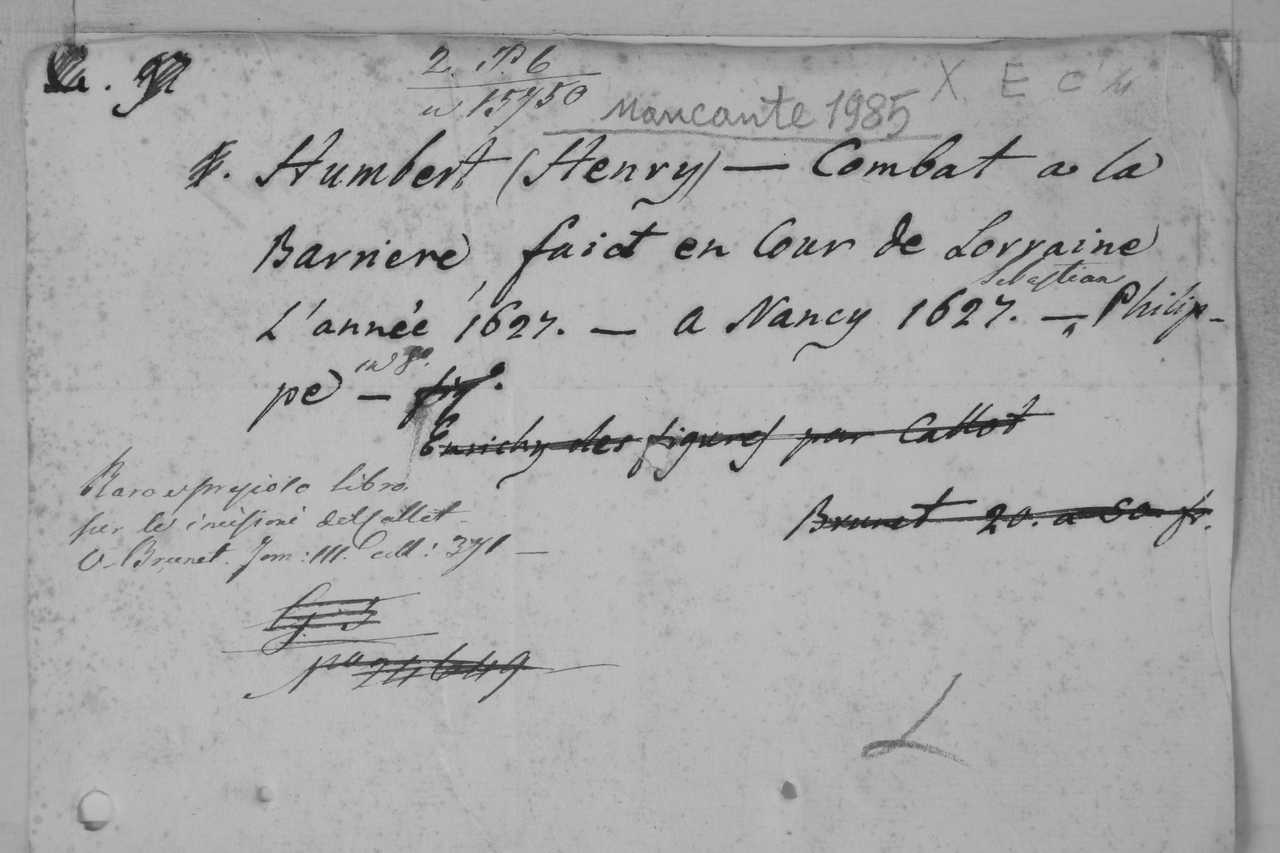 2. P. 6
15950
Mancante 1985
X E C
Humbert (Henry) — Combat a la
Barriere, faict en Cour de Lorraine
Sebastian
L'année 1627. — a Nancy 1627. — Philip-
pe — in 8º.
Enrichy des figures par Callot
Brunet 20. a 50 fr.
Raro e pregiato libro
per le incisioni del Callot
V. Brunet. Tom: III. coll: 371 —
G. 5
nº 24649
L